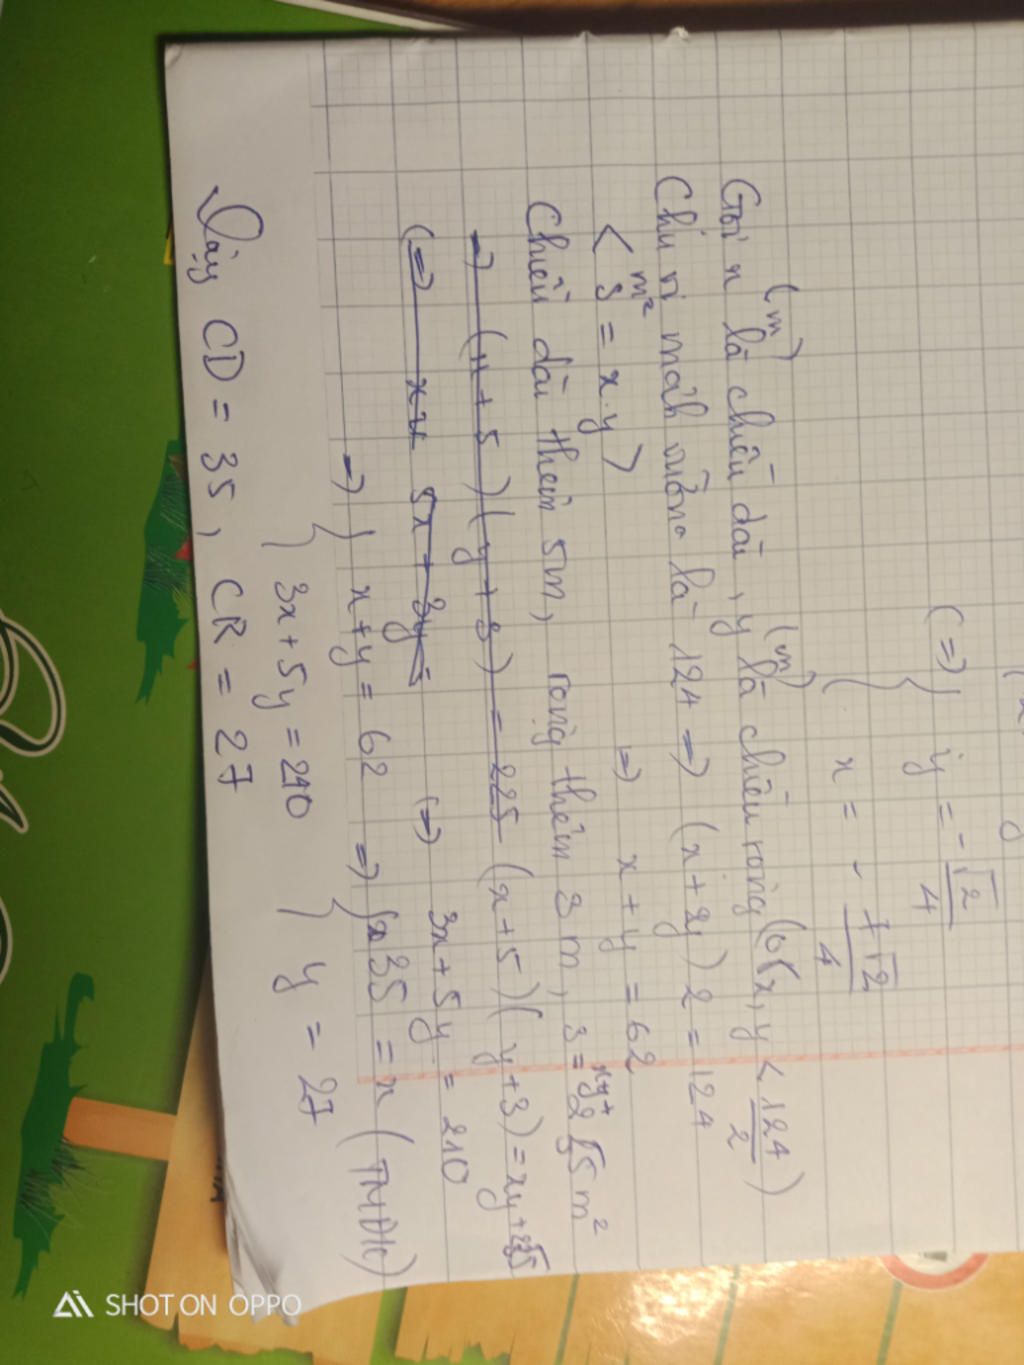 (=) { y = -√2/4
x = - 7√2/4
Gọi x là chiều dài, y là chiều rộng (0 < x, y < 124/2)
(m) (m)
Chu vi mảnh vườn là 124 => (x + y) 2 = 124
=> x + y = 62
< S = x.y >
m²
Chiều dài thêm 5m, rộng thêm 3m, S = xy + 225 m²
=> (x + 5)(y + 3) = 225 (x + 5)(y + 3) = xy + 225
(=) xy 5x + 3y = (=) 3x + 5y = 210
=> { x + y = 62 => { 35 = x (TMĐK)
3x + 5y = 210 y = 27
Vậy CD = 35, CR = 27
SHOT ON OPPO